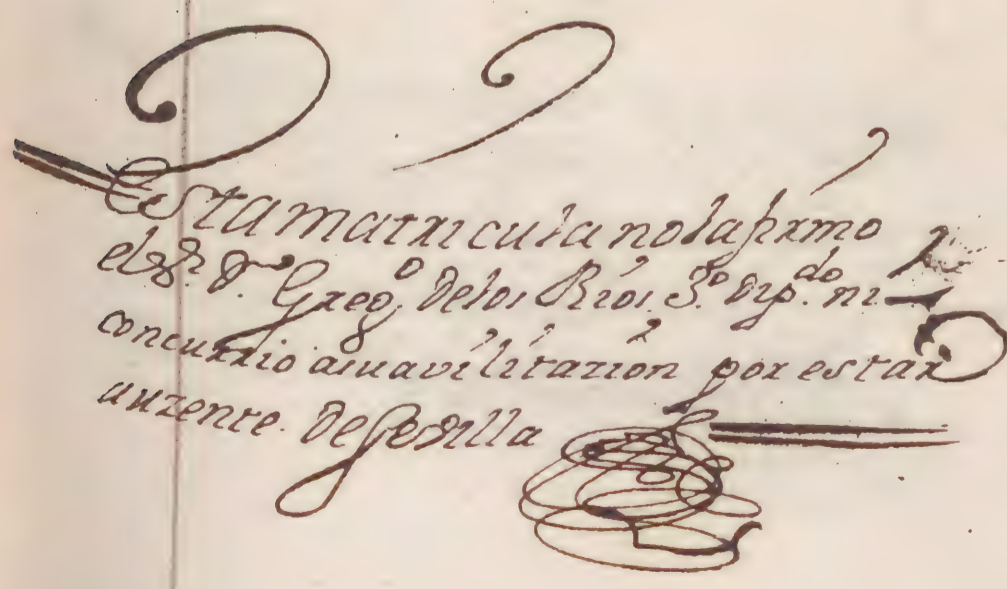 Esta matricula no la firmo
el Sr. Dn. Grego. de los Rios 3o. dip.do ni
concurrio a su avilitazion por estar
auzente de Sevilla